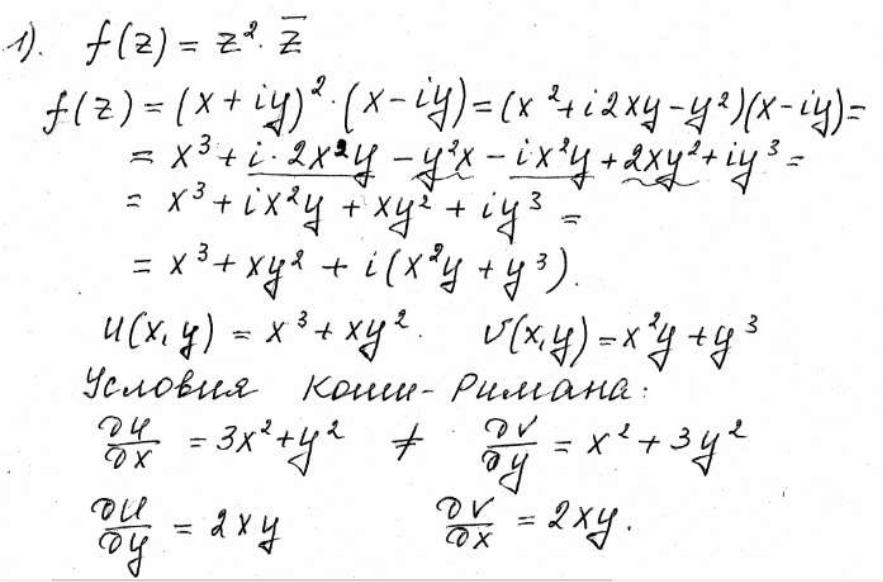 1). f(z) = z². z̅
f(z) = (x + iy)². (x - iy) = (x² + i2xy - y²)(x - iy) =
= x³ + i · 2x²y - y²x - ix²y + 2xy² + iy³ =
= x³ + ix²y + xy² + iy³ =
= x³ + xy² + i(x²y + y³).
u(x, y) = x³ + xy². v(x,y) = x²y + y³
Условия Коши-Римана:
∂u/∂x = 3x² + y² ≠ ∂v/∂y = x² + 3y²
∂u/∂y = 2xy ∂v/∂x = 2xy.